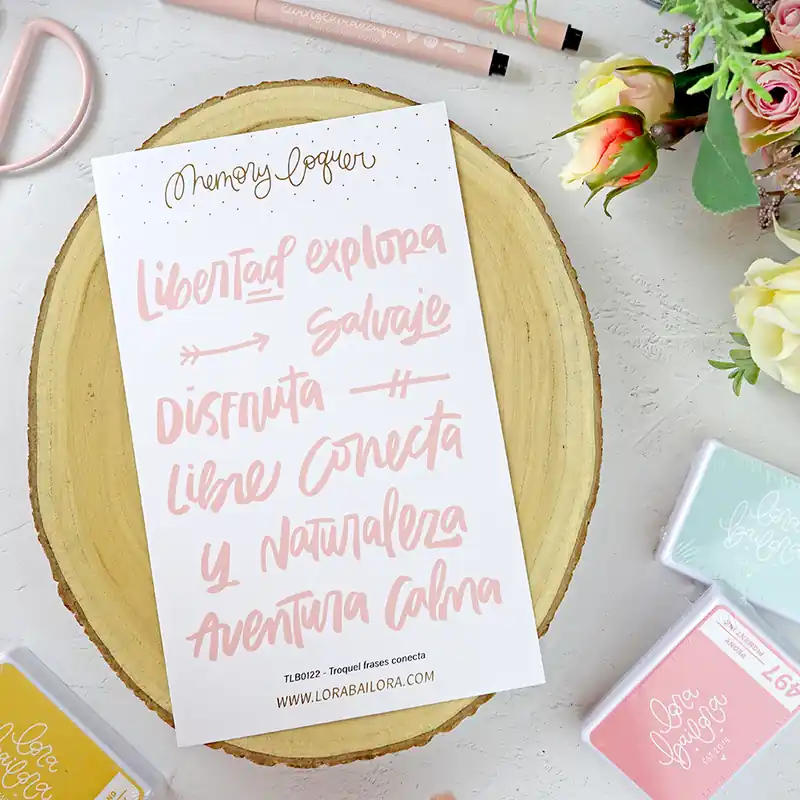 Memory loquer
Libertad explora
Salvaje
Disfruta
Libre Conecta
y Naturaleza
Aventura Calma
TLB0122 - Troquel frases conecta
WWW.LORABAILORA.COM
lora
bailora
lora
bailora
EST 2015
497
PEONY
PIGMENT INK
lora
bailora